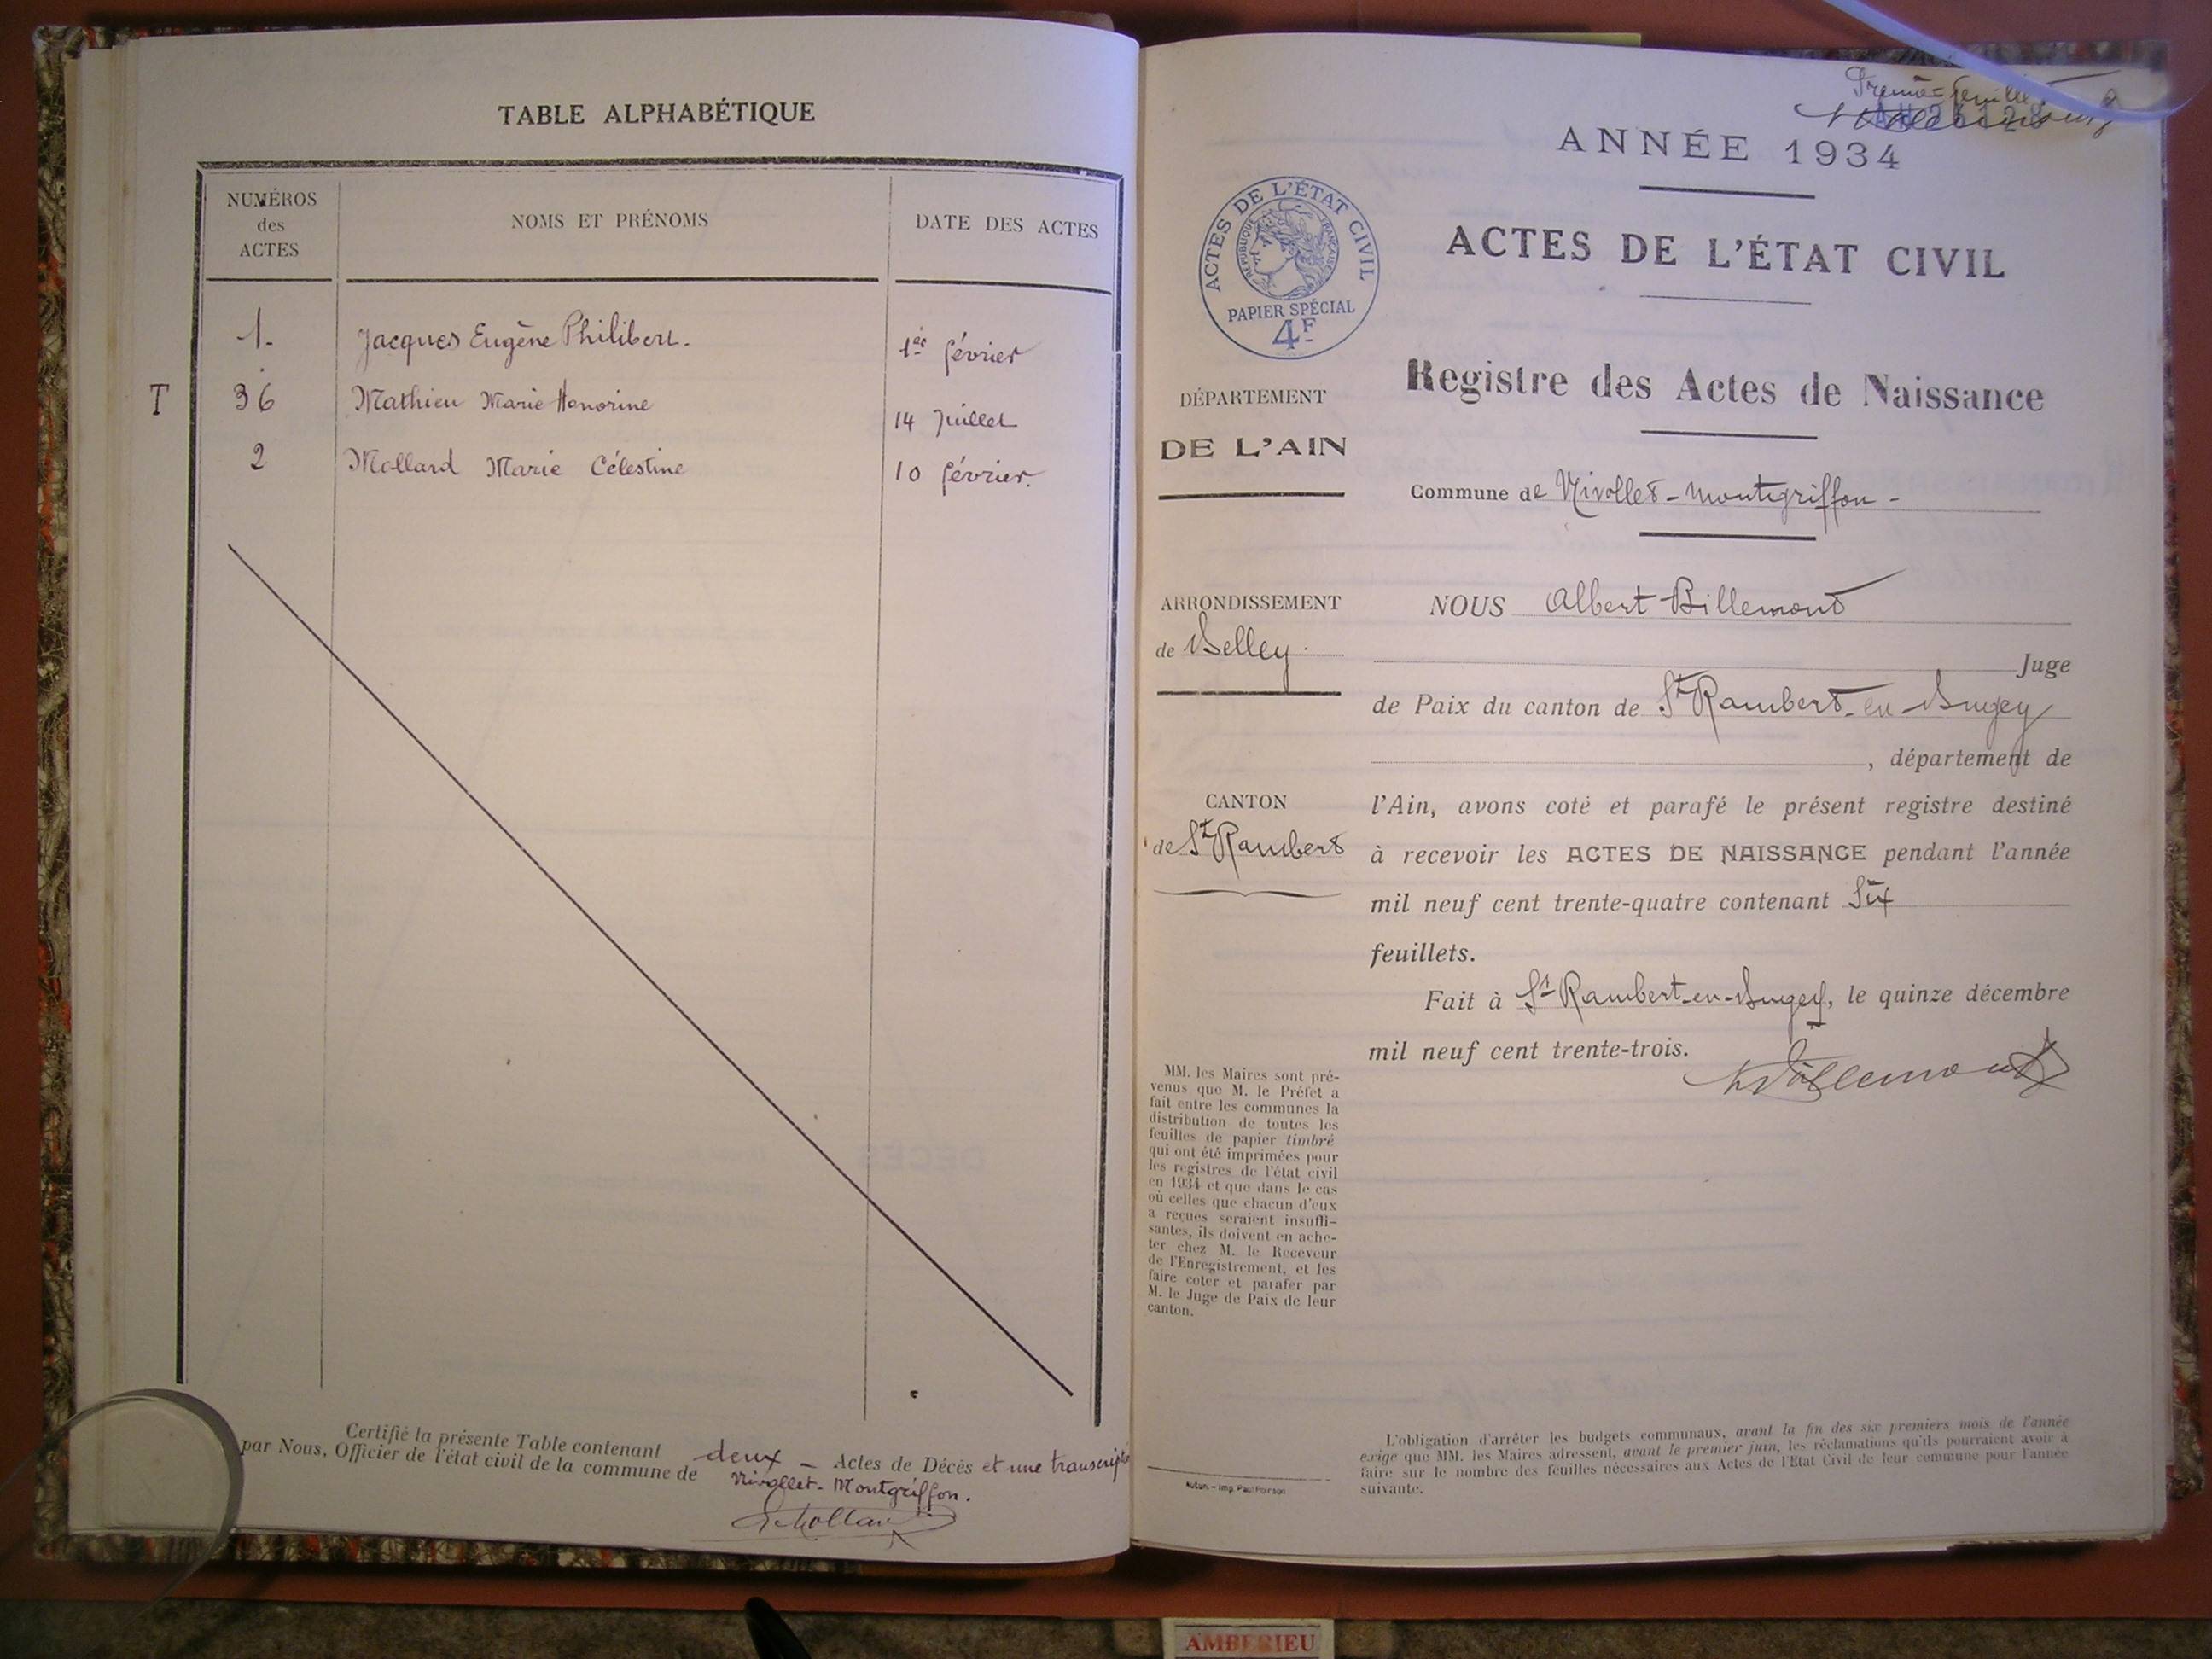 TABLE ALPHABÉTIQUE
NUMÉROS
des
ACTES
NOMS ET PRÉNOMS
DATE DES ACTES
1. Jacques Eugène Philibert. 1er février
T 36 Mathieu Marie Honorine 14 Juillet
2 Mollard Marie Célestine 10 février.
Certifié la présente Table contenant deux - Actes de Décès et une transcript
par Nous, Officier de l'état civil de la commune de Nivollet-Montgriffon.
Mollard
Premier feuillet
ANNÉE 1934
ACTES DE L'ÉTAT CIVIL
RÉPUBLIQUE FRANÇAISE
PAPIER SPÉCIAL
4F
ACTES DE L'ÉTAT CIVIL
Registre des Actes de Naissance
Commune de Nivollet-Montgriffon -
DÉPARTEMENT
DE L'AIN
ARRONDISSEMENT
de Belley.
CANTON
de St Rambert
NOUS Albert Billemont
Juge
de Paix du canton de St Rambert-en-Bugey
, département de
l'Ain, avons coté et parafé le présent registre destiné
à recevoir les ACTES DE NAISSANCE pendant l'année
mil neuf cent trente-quatre contenant Six
feuillets.
Fait à St Rambert-en-Bugey, le quinze décembre
mil neuf cent trente-trois.
Billemont
MM. les Maires sont pré-
venus que M. le Préfet a
fait entre les communes la
distribution de toutes les
feuilles de papier timbré
qui ont été imprimées pour
les registres de l'état civil
en 1934 et que dans le cas
où celles que chacun d'eux
a reçues seraient insuffi-
santes, ils doivent en ache-
ter chez M. le Receveur
de l'Enregistrement, et les
faire coter et parafer par
M. le Juge de Paix de leur
canton.
Autun. - Imp. Paul Poirson
L'obligation d'arrêter les budgets communaux, avant la fin des six premiers mois de l'année
exige que MM. les Maires adressent, avant le premier juin, les réclamations qu'ils pourraient avoir à
faire sur le nombre des feuilles nécessaires aux Actes de l'Etat Civil de leur commune pour l'année
suivante.
AMBERIEU